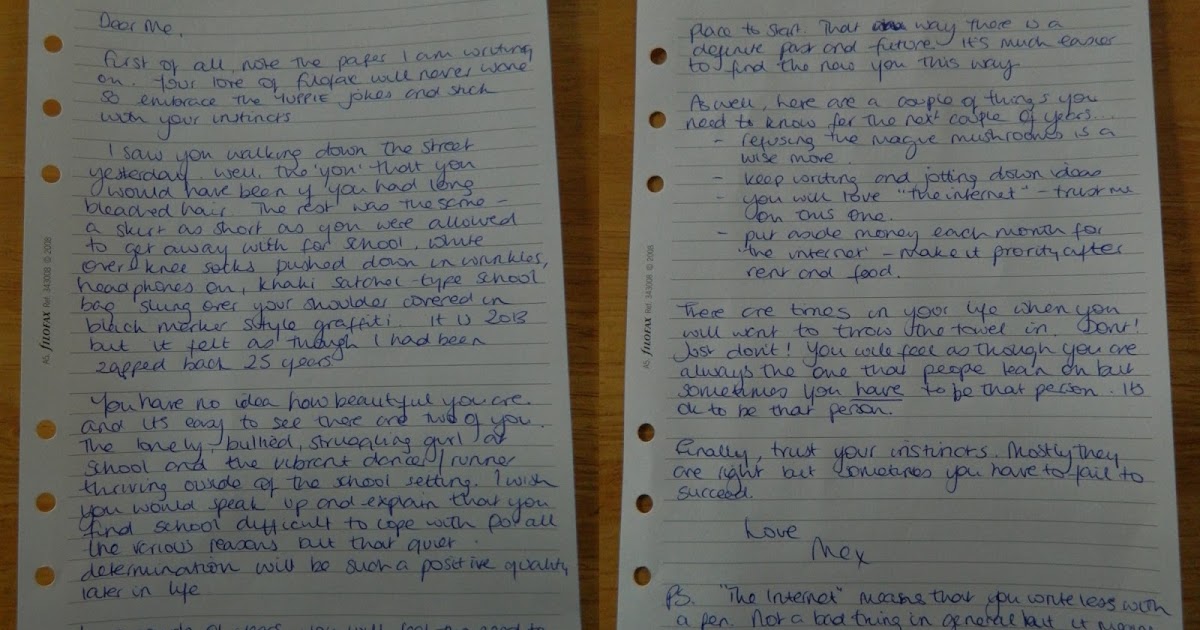 Dear Me,
First of all, note the paper I am writing
on. Your love of filofax will never wane
so embrace the YUPPIE jokes and stick
with your instincts
I saw you walking down the street
yesterday. Well, the 'you' that you
would have been if you had long
bleached hair. The rest was the same -
a skirt as short as you were allowed
to get away with for school, white
over knee socks pushed down in wrinkles,
headphones on, khaki satchel-type school
bag slung over your shoulder covered in
black marker style graffiti. It is 2013
but it felt as though I had been
zapped back 25 years
You have no idea how beautiful you are.
and its easy to see there are two of you.
The lonely, bullied, struggling girl at
school and the vibrant dancer/runner
thriving outside of the school setting. I wish
you would speak up and explain that you
find school difficult to cope with for all
the various reasons but that quiet
determination will be such a positive quality
later in life
A5 FILOFAX Ref. 343008 © 2008
place to start. That way there is a
definite past and future. It's much easier
to find the new you this way
As well, here are a couple of things you
need to know for the next couple of years...
- refusing the magic mushrooms is a
wise move.
- keep writing and jotting down ideas
- you will love "the internet" - trust me
on this one.
- put aside money each month for
'the internet' - make it priority after
rent and food.
There are times in your life when you
will want to throw the towel in. Dont!
Just don't! You will feel as though you are
always the one that people lean on but
sometimes you have to be that person. Its
ok to be that person.
Finally, trust your instincts. Mostly they
are right but sometimes you have to fail to
succeed.
Love
Mex
PS. "The Internet" means that you write less with
a pen. Not a bad thing in general but it
A5 FILOFAX Ref. 343008 © 2008